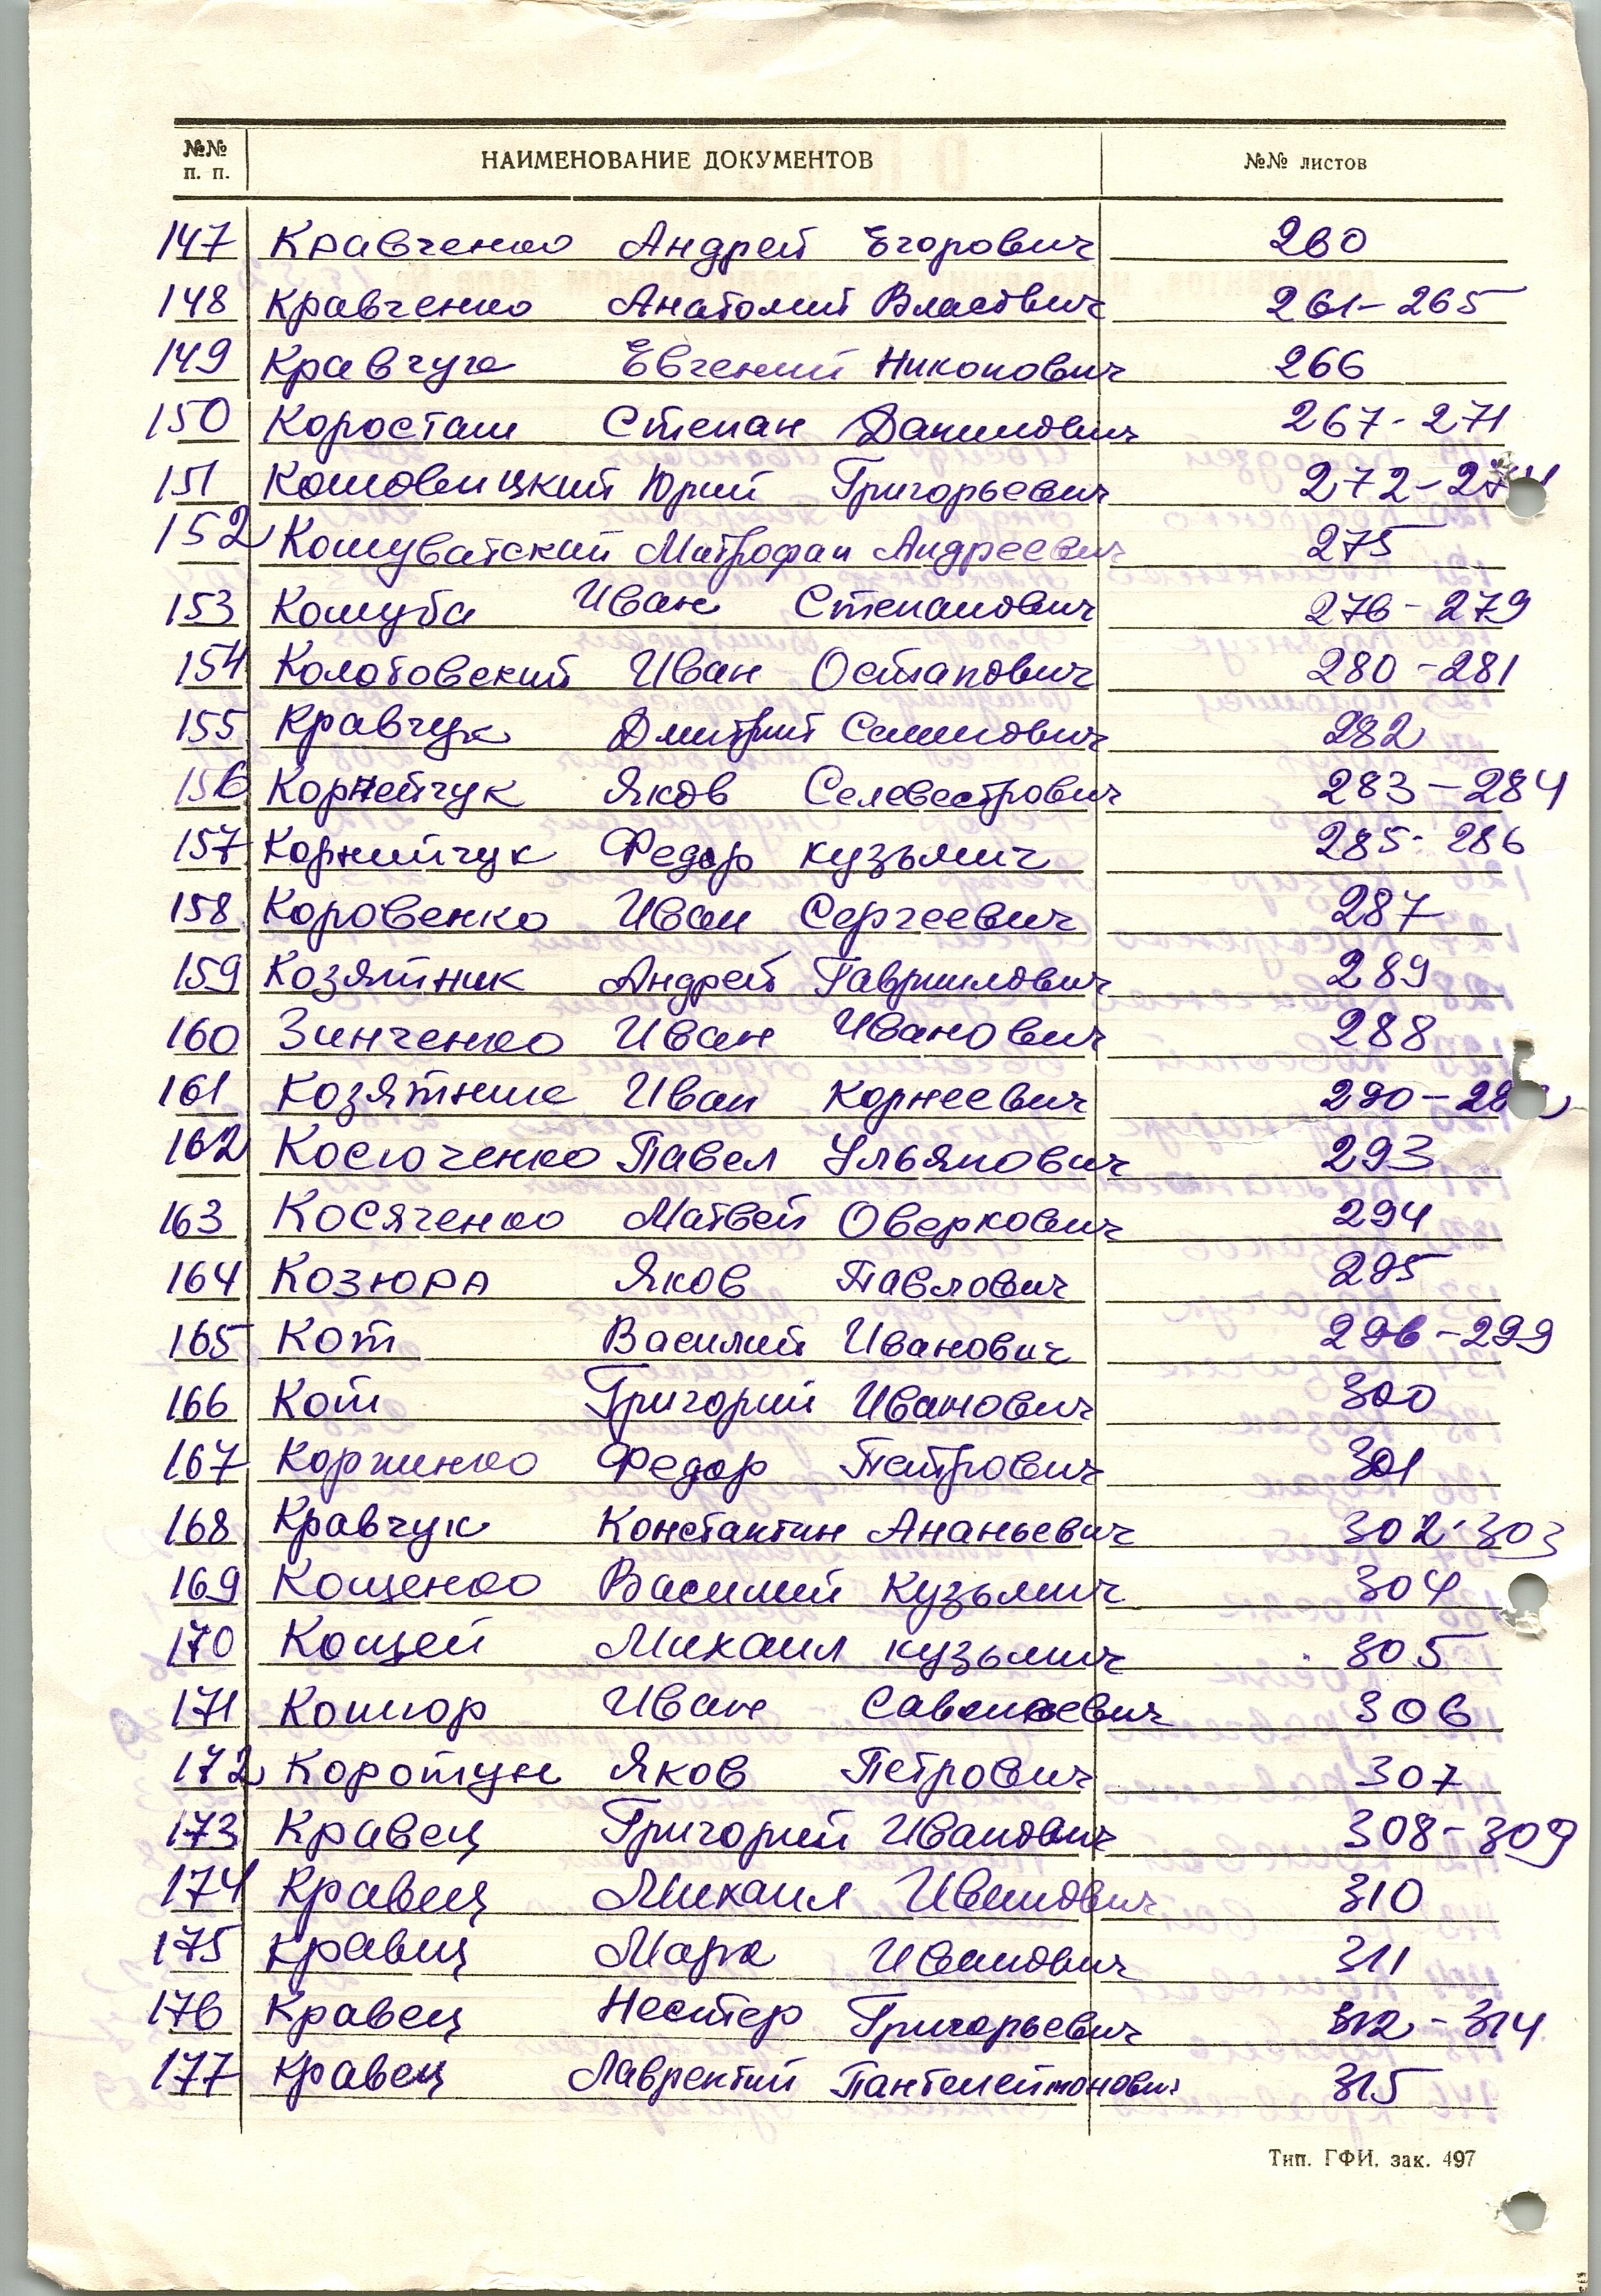 №№ п. п. НАИМЕНОВАНИЕ ДОКУМЕНТОВ №№ листов
147 Кравченко Андрей Егорович 260
148 Кравченко Анатолий Власович 261-265
149 Кравчук Евгений Никонович 266
150 Коросташ Степан Данилович 267-271
151 Кошовицкий Юрий Григорьевич 272-274
152 Кошуватский Митрофан Андреевич 275
153 Кошуба Иван Степанович 276-279
154 Колотовский Иван Остапович 280-281
155 Кравчук Дмитрий Семенович 282
156 Корнейчук Яков Селевестрович 283-284
157 Корнийчук Федор Кузьмич 285-286
158 Коровенко Иван Сергеевич 287
159 Козятник Андрей Гаврилович 289
160 Зинченко Иван Иванович 288
161 Козятник Иван Корнеевич 290-292
162 Косюченко Павел Ульянович 293
163 Косяченко Матвей Оверкович 294
164 Козюра Яков Павлович 295
165 Кот Василий Иванович 296-299
166 Кот Григорий Иванович 300
167 Коржинко Федор Петрович 301
168 Кравчук Константин Ананьевич 302-303
169 Кощенко Василий Кузьмич 304
170 Кощей Михаил Кузьмич 305
171 Кошор Иван 306
172 Коротун Яков Петрович 307
173 Кравец Григорий Иванович 308-309
174 Кравец Михаил Иванович 310
175 Кравец Марк Иванович 311
176 Кравец Нестер Григорьевич 312-314
177 Кравец Лаврентий Пантелеймонович 315
Тип. ГФИ. зак. 497